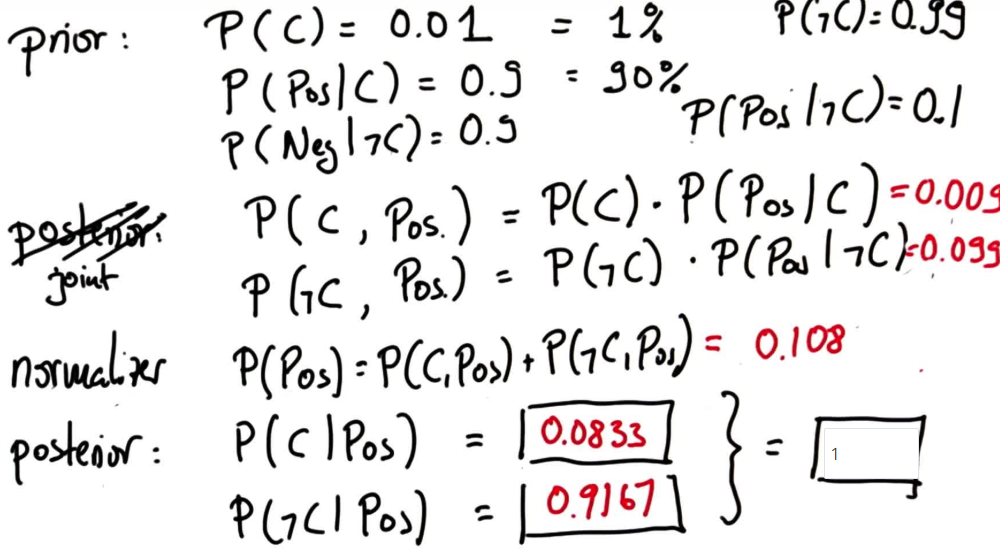 prior: P(C) = 0.01 = 1% P(¬C)=0.99
P(Pos|C) = 0.9 = 90%
P(Pos|¬C)=0.1
P(Neg|¬C)= 0.9
posterior:
joint
P(C, Pos.) = P(C) · P(Pos|C) =0.009
P(¬C, Pos.) = P(¬C) · P(Pos|¬C)=0.099
normalizer P(Pos)=P(C,Pos)+P(¬C,Pos) = 0.108
posterior: P(C|Pos) = 0.0833 } = 1
P(¬C|Pos) = 0.9167